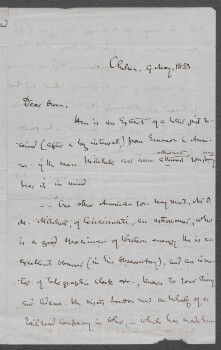 Chelsea, 9 May, 1853
Dear
Here is an Extract of a letter just re-
ceived (after a long interval) from Emerson in Ameri-
ca: if the man Mitchell
bear it in mind
— "One other American you may meet, Mr O.
M. Mitchell, of Cincinnati, an astronomer, who
is a good specimen of Western energy. He is an
excellent observer (in his Observatory), and an inven-
tor of telegraphic clock &c, known to your
and Adams. He visits London on behalf of a
Railroad Company in Ohio, – which has made him